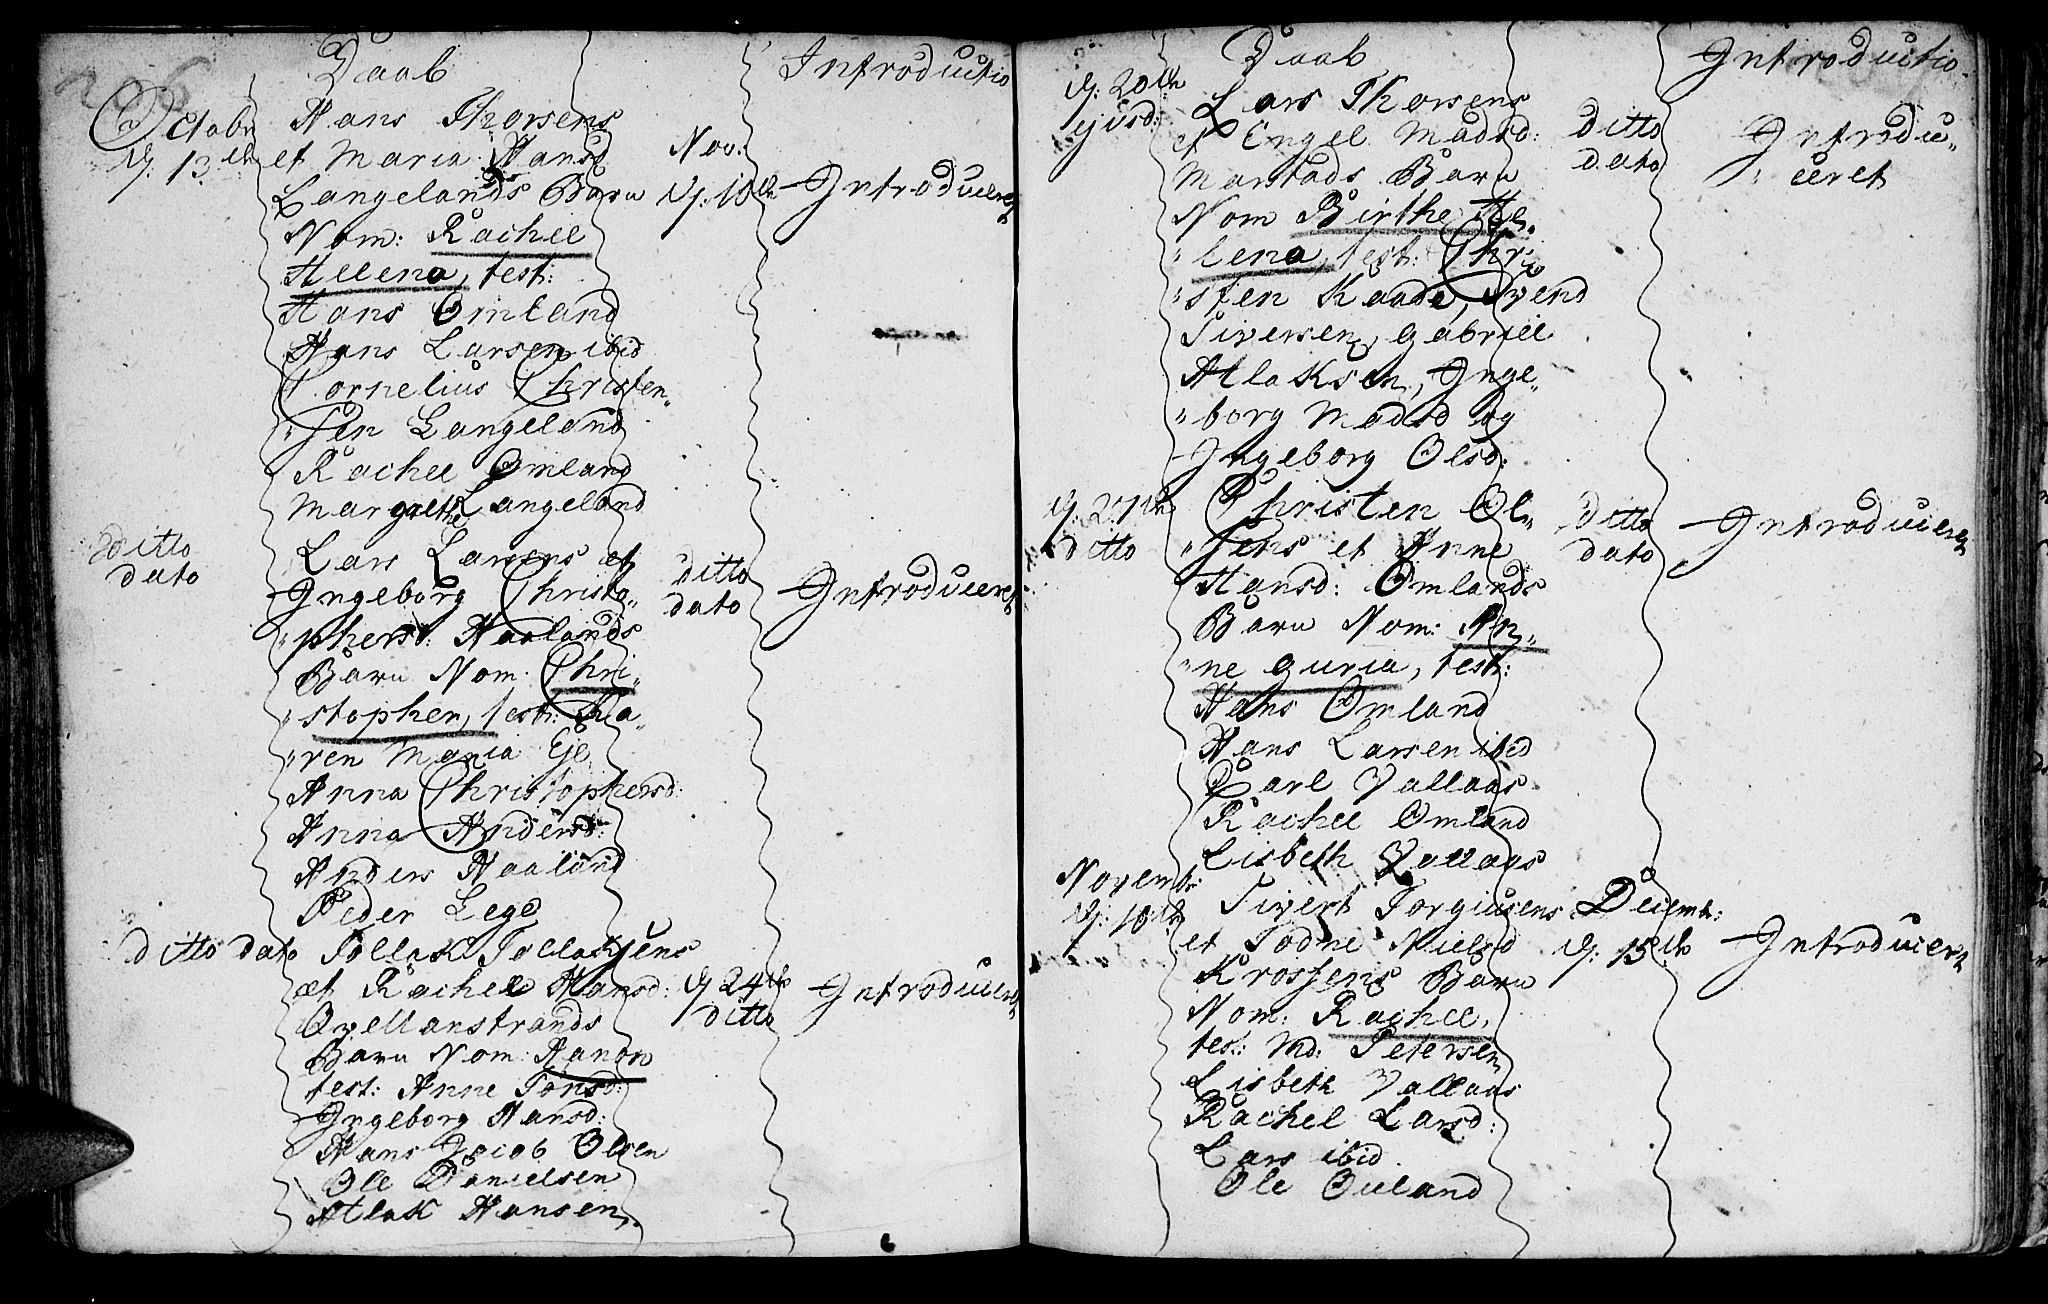 206
Daab
Introductio
Octobr
d: 13de
Hans Thorsens
et Maria Hansd
Langelands Barn
Nom: Rachel
Helena, test:
Hans Omland
Hans Larsen ibid
Cornelius Christen„
„sen Langeland
Rachel Omland
Margrethe Langeland
Nov:
d: 10de
Introduceret
ditto
dato
Lars Larsens et
Ingeborg Christo„
„phersd: Haalands
Barn Nom: Chri„
„stopher, test: Ka„
„ren Maria Eje
Anna Christophersd:
Anna Andersd:
Anders Haaland
Peder Lege
ditto
dato
Introduceret
ditto dato
Tollak Tollaksens
et Rachel Hansd:
Qvellanstrands
Barn Nom: Hanon
test: Anne Tønsd:
Ingeborg Hansd:
Hans Jacob Olsen
Ole Danielsen
Atlak Hansen,
d 24de
ditto
Introduceret
Daab
Introductio
d: 20de
ejusd:
Lars Thorsens
et Engel Madsd:
Marstads Barn
Nom Birthe He„
„lena, test: Chri„
„sten Kaade, Svend
Siversen, Gabriel
Atlaksen, Inge„
„borg Madsd og
Ingeborg Olsd:
ditto
dato
Introdu„
„ceret
d: 27de
ditto
Christen Ol„
„sens et Anne
Hansd: Omlands
Barn Nom: An„
„ne Guria, test:
Hans Omland
Hans Larsen ibid
Carl Vallaas
Rachel Omland
Lisbeth Vallaas
ditto
dato
Introduceret
Novembr:
d: 10de
Sivert Torgiusens
et Todne Nielsd
Krossens Barn
Nom: Rachel,
test: Md: Petersen
Lisbeth Vallaas
Rachel Larsd:
Lars ibid
Ole Ouland
Decemb:
d: 15de
Introduceret